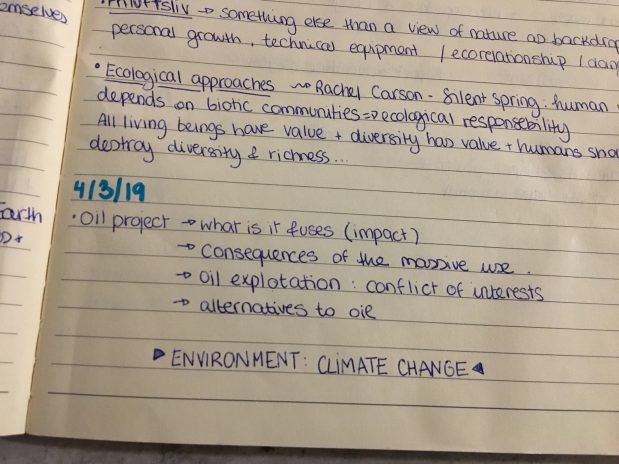 emselves
• Friluftsliv → something else than a view of nature as backdrop
personal growth, technical equipment / ecorelationship /
• Ecological approaches ~> Rachel Carson - Silent Spring: human
depends on biotic communities => ecological responsebility
All living beings have value + diversity has value + humans
destray diversity & richness...
4/3/19
Earth
• Oil project → what is it fuses (impact)
→ consequences of the massive use.
→ oil explotation: conflict of interests
→ alternatives to oil
▶ ENVIRONMENT: CLIMATE CHANGE ◀